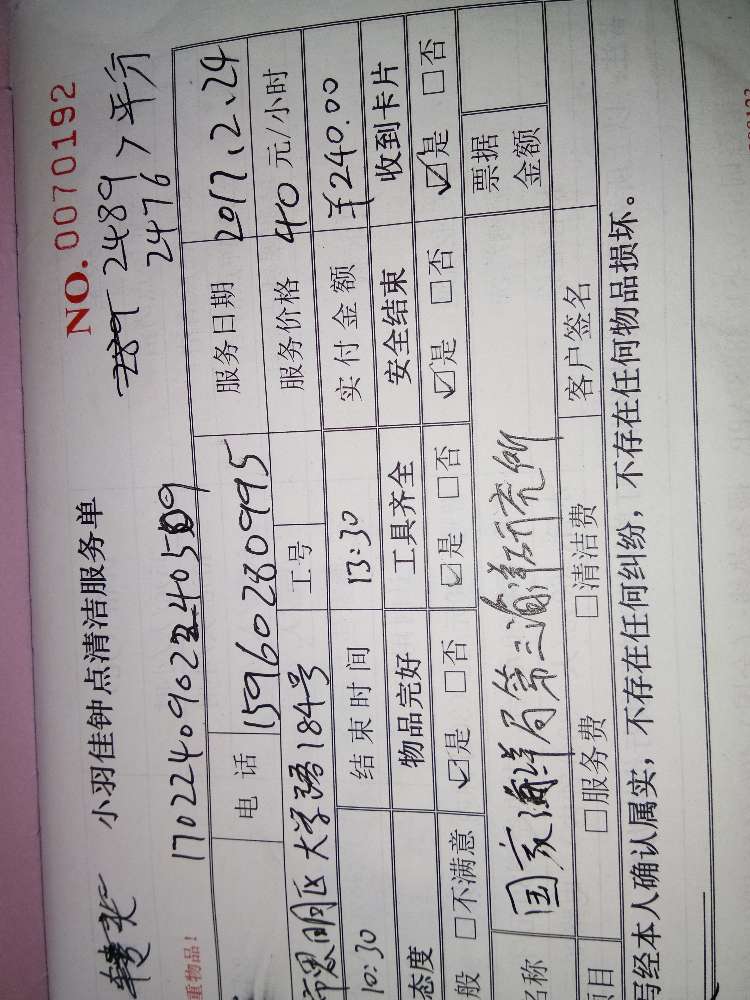 NO. 0070192
小羽佳钟点清洁服务单
2489 > 平分
2476
重物品!
电话 15960280995 服务日期 2017、2、24
市思明区大学路184号 工号 服务价格 40元/小时
10:30 结束时间 13:30 实付金额 ¥240.00
态度 物品完好 工具齐全 安全结束 收到卡片
般 □不满意 ☑是 □否 ☑是 □否 ☑是 □否 ☑是 □否
名称 国家海洋局第三海洋研究所 票据金额
项目 □服务费 □清洁费 客户签名
写经本人确认属实,不存在任何纠纷,不存在任何物品损坏。